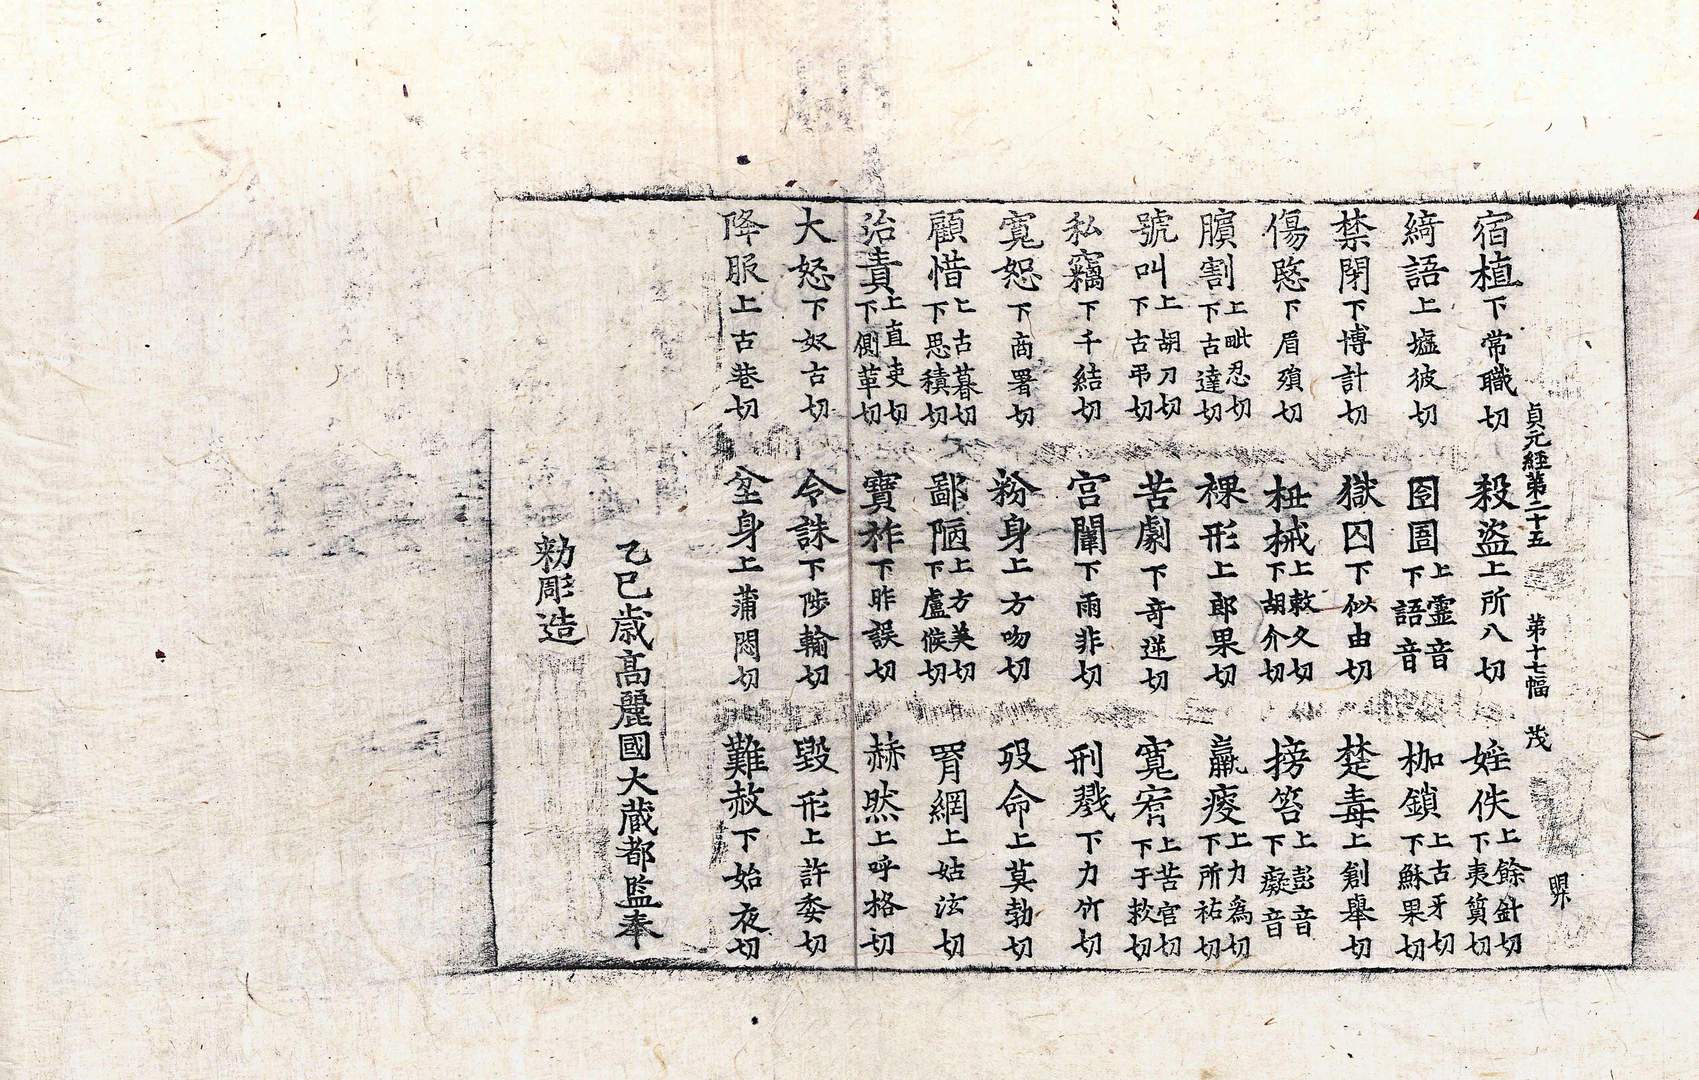 貞元經第二十五 第十七幅 茂 𢌿
宿植下常職切 殺盜上所八切 婬佚上餘針切下夷質切
綺語上墟彼切 囹圄上靈音下語音 枷鎖上古牙切下蘇果切
禁閉下博計切 獄囚下似由切 楚毒上創舉切
傷愍下眉殞切 杻械上敕久切下胡介切 搒笞上彭音下癡音
臏割上毗忍切下古達切 裸形上郎果切 羸瘦上力爲切下所祐切
號叫上胡刀切下古弔切 苦劇下奇逆切 寬宥上苦官切下于救切
私竊下千結切 宮闈下雨非切 刑戮下力竹切
寬恕下商署切 粉身上方吻切 歿命上莫勃切
顧惜上古暮切下思積切 鄙陋上方美切下盧候切 罥網上姑泫切
治責上直吏切下側革切 寶祚下昨誤切 赫然上呼格切
大怒下奴古切 令誅下陟輸切 毀形上許委切
降服上古巷切 坌身上蒲悶切 難赦下始夜切
乙巳歲高麗國大藏都監奉
勅彫造